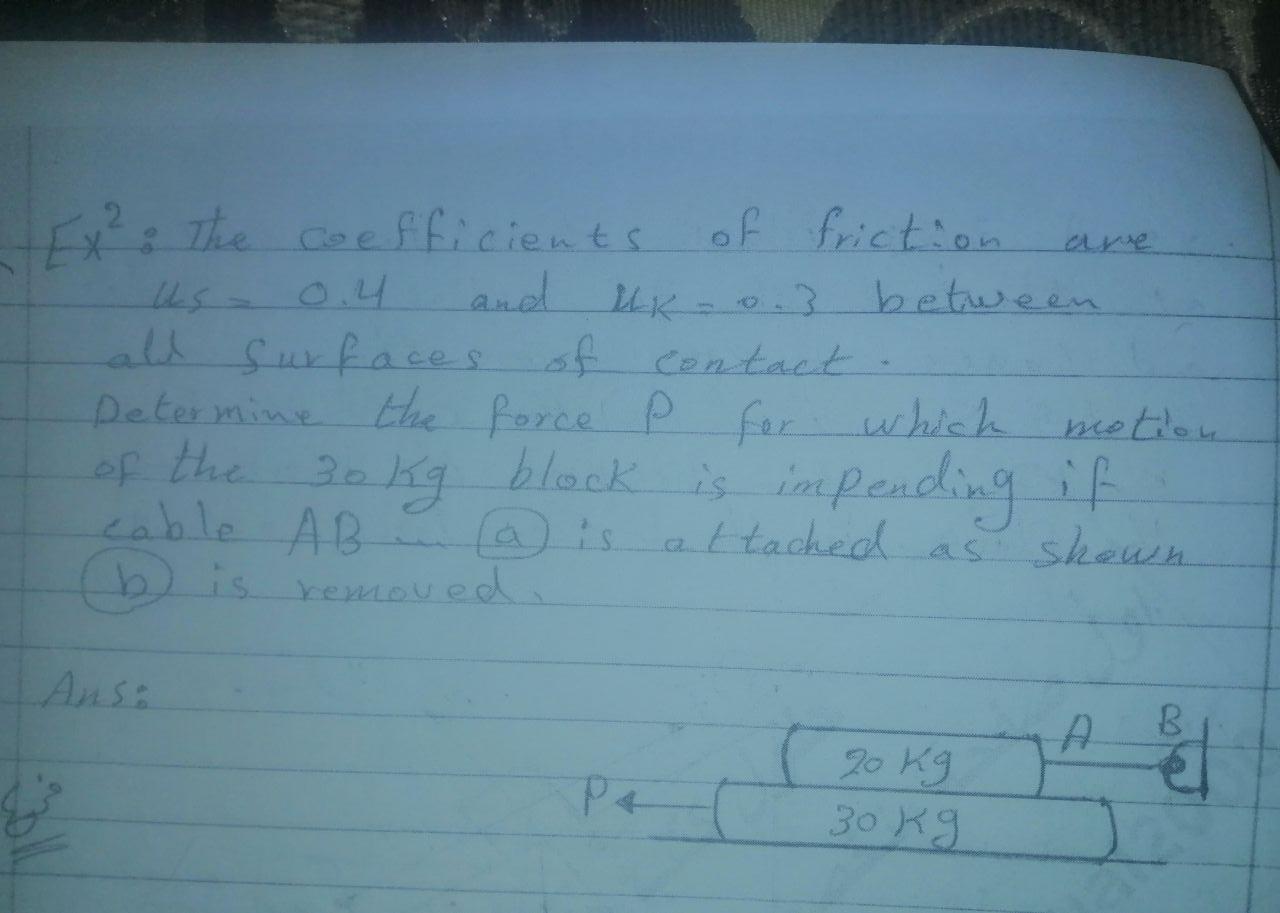 Ex²: The coefficients of friction are
μs = 0.4 and μk = 0.3 between
all surfaces of contact.
Determine the force P for which motion
of the 30 Kg block is impending if
cable AB - (a) is attached as shown
(b) is removed.
Ans:
A B
20 Kg
P
30 Kg